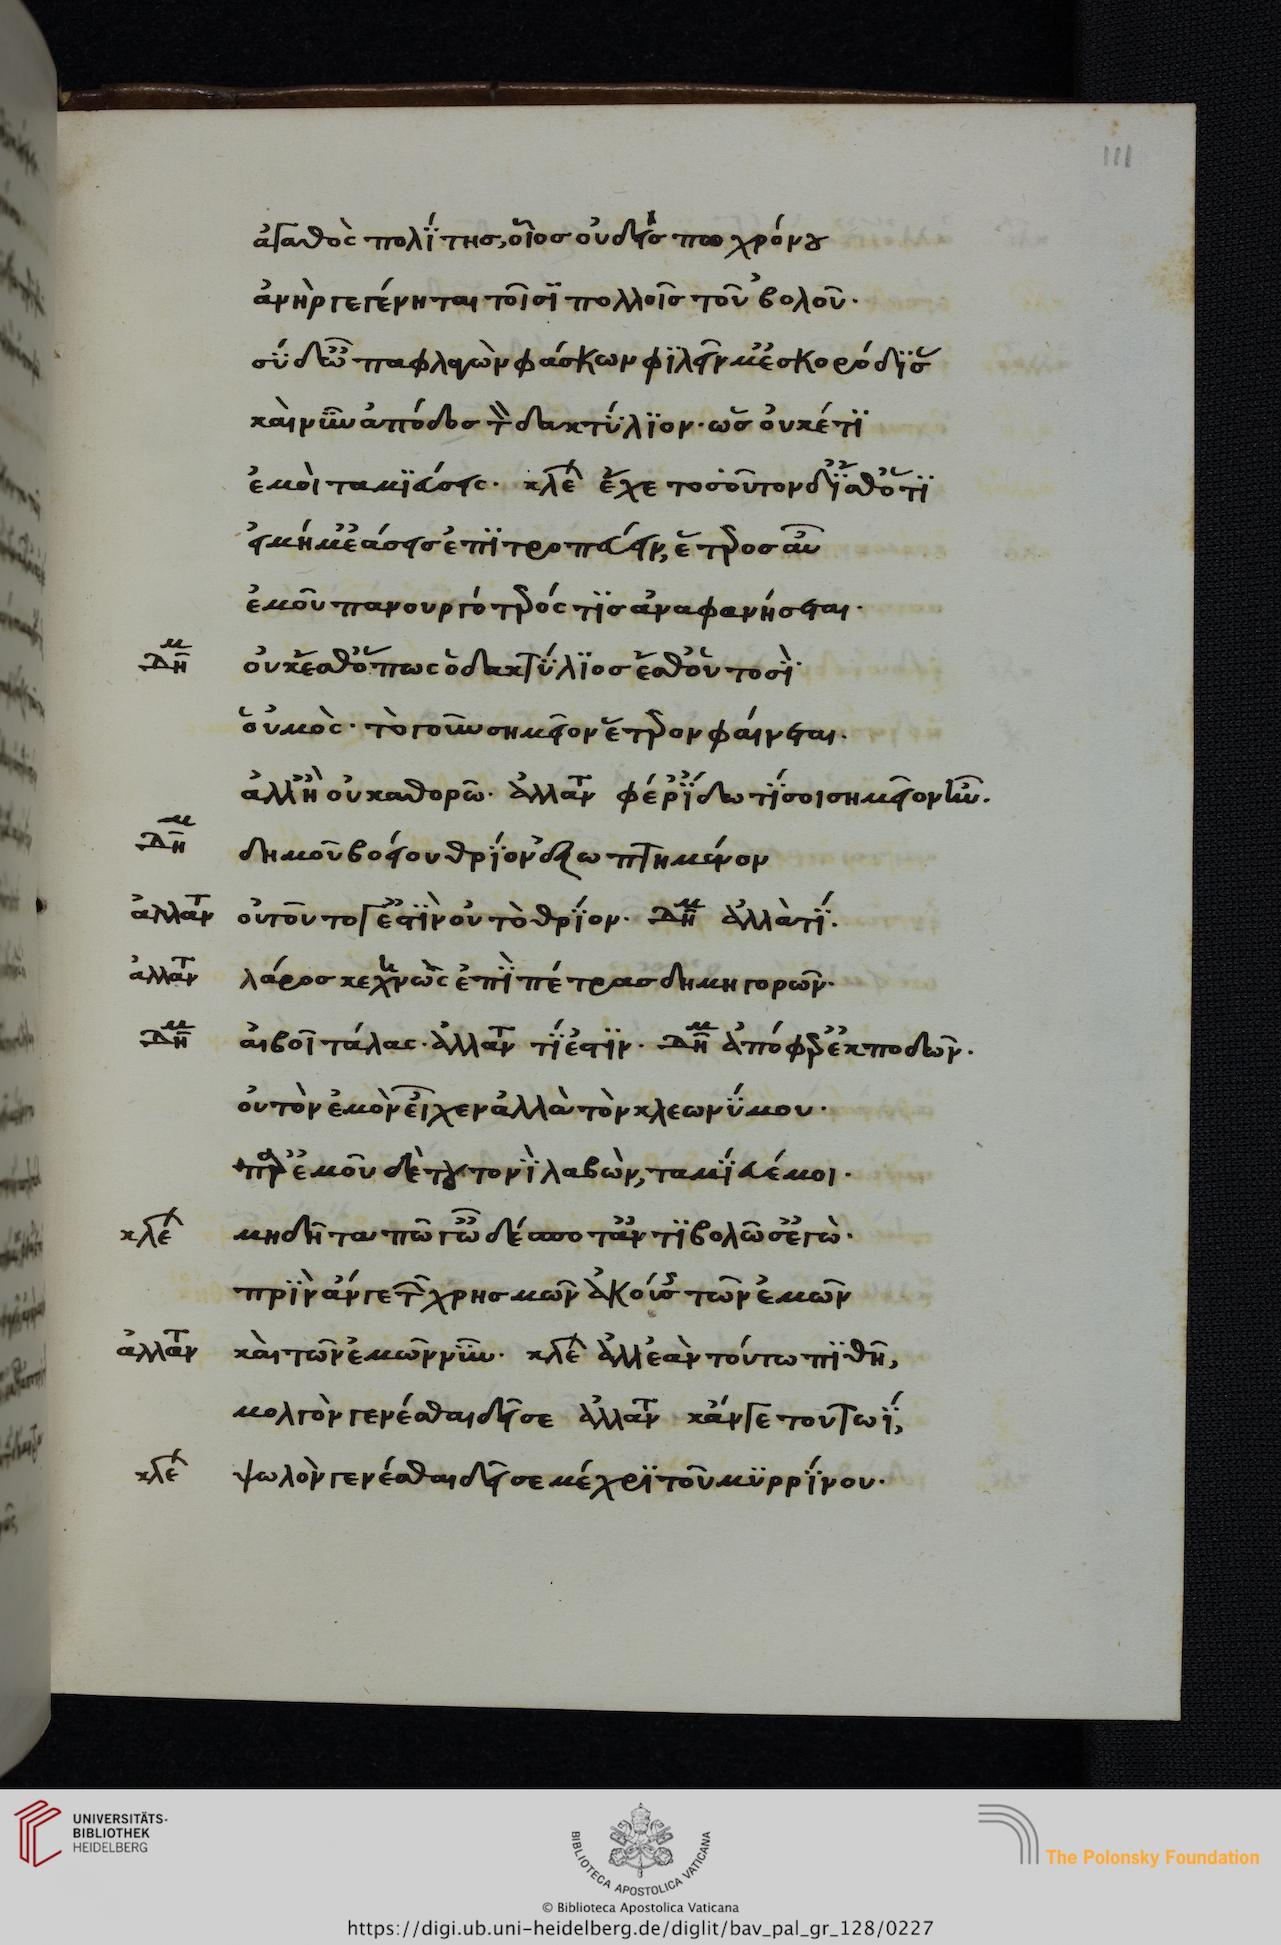 111
ἀγαθὸς πολίτης, οἷος οὐδείς πω χρόνου
ἀνὴρ γεγένηται τοῖσι πολλοῖς τοῦ 'βολοῦ·
σύ δ' ὦ παφλαγὼν φάσκων φιλεῖν μ' ἐσκορόδισ
καὶ νῦν ἀπόδος τὸν δακτύλιον· ὡς οὐκέτι
ἐμοὶ ταμιεύσεις· κλέ ἔχε τοσοῦτον δ' ἴσθ' ὅτι
εἰ μή μ' ἐάσεις ἐπιτροπεύειν, ἕτερος αὖ
ἐμοῦ πανουργότερός τις ἀναφανήσεται·
Δημ οὐκ ἔσθ' ὅπως ὁ δακτύλιος ἔσθ' οὑτοσὶ
οὑμὸς· τὸ γοῦν σημεῖον ἕτερον φαίνεται·
ἀλλ' ἢ οὐ καθορῶ· ἀλλαντ φέρ' ἴδω τί σοι σημεῖον ἦν.
Δημ δημοῦ βοείου θρῖον ἐξωπτημένον
ἀλλαντ οὐ τοῦτό γ' ἔστιν οὐ τὸ θρίον· Δημ ἀλλὰ τί.
ἀλλαντ λάρος κεχηνὼς ἐπὶ πέτρας δημηγορῶν·
Δημ αἰβοῖ τάλας· ἀλλαντ τί ἔστιν· Δημ ἀπόφερ' ἐκποδών·
οὐ τὸν ἐμὸν εἶχεν ἀλλὰ τὸν κλεωνύμου·
παρ' ἐμοῦ δὲ τουτονὶ λαβὼν, ταμίευέ μοι·
κλέ μὴ δῆτα πῶ γ' ὦ δέσποτ' ἀντιβολῶ σ' ἐγὼ·
πρὶν ἄν γε τῶν χρησμῶν ἀκούσῃς τῶν ἐμῶν
ἀλλαντ καὶ τῶν ἐμῶν νῦν· κλέ ἀλλ' ἐὰν τούτω πίθη,
μολγὸν γενέσθαι δεῖ σε ἀλλαντ κἄν γε τουτωί,
κλέ ψωλὸν γενέσθαι δεῖ σε μέχρι τοῦ μυρρίνου·
UNIVERSITÄTS-
BIBLIOTHEK
HEIDELBERG
BIBLIOTECA APOSTOLICA VATICANA
© Biblioteca Apostolica Vaticana
The Polonsky Foundation
https://digi.ub.uni-heidelberg.de/diglit/bav_pal_gr_128/0227